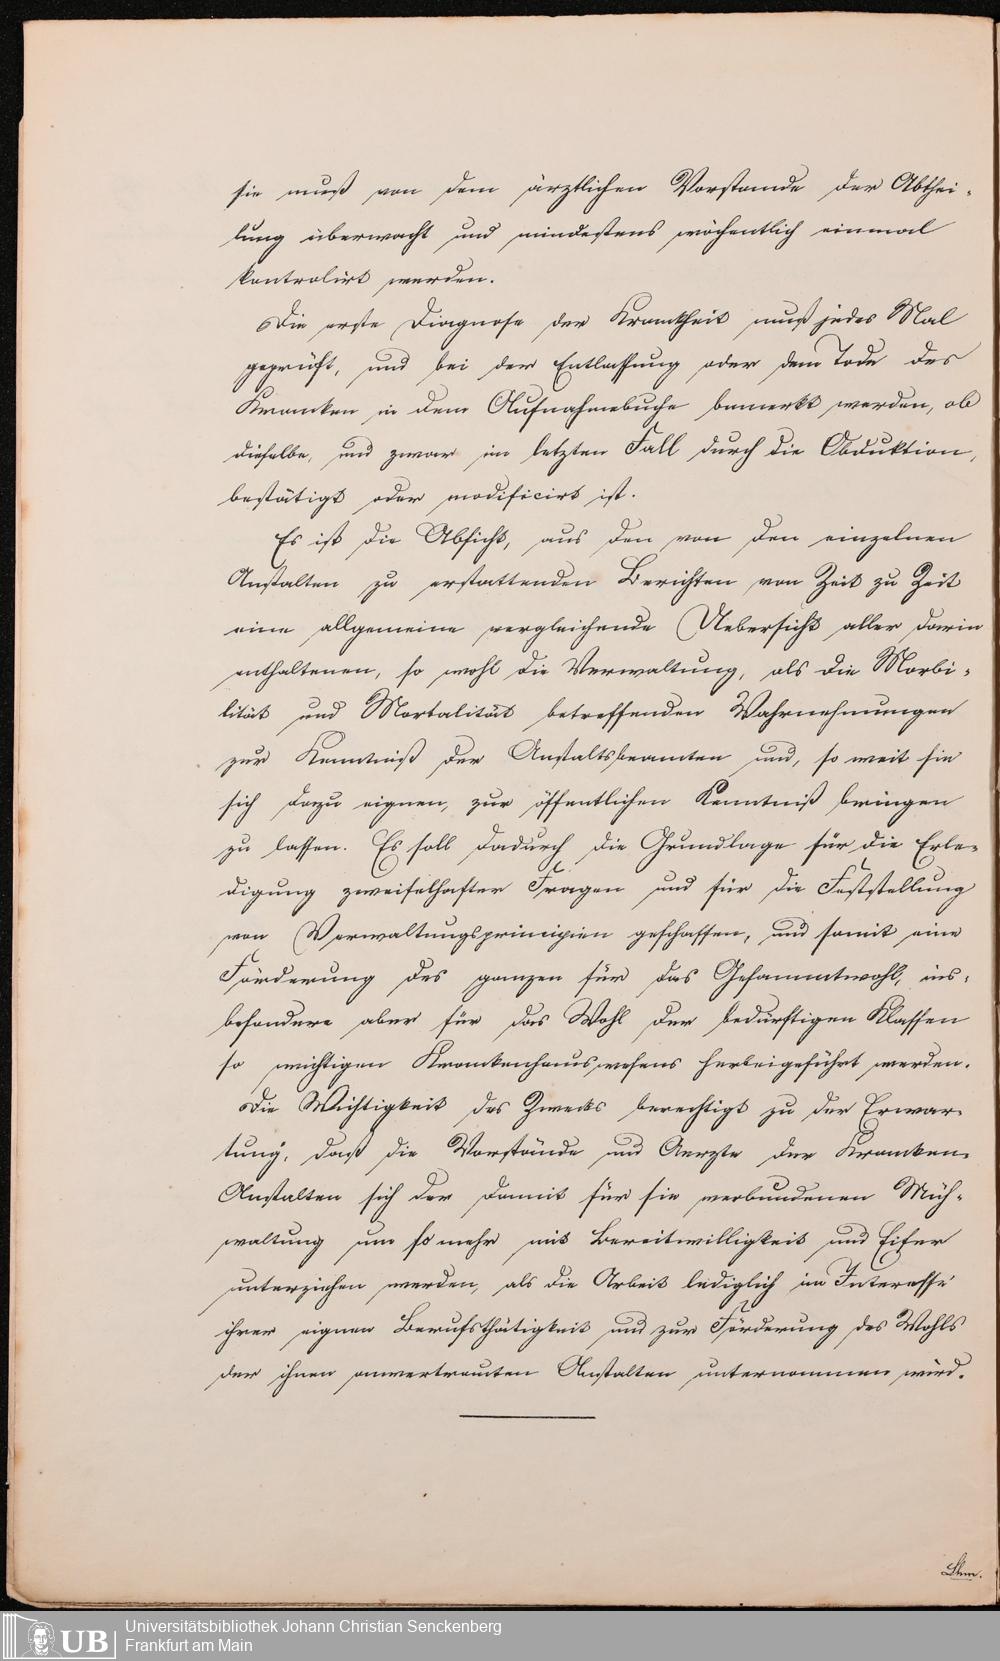 sie muß von dem ärztlichen Vorstande der Abthei-
lung überwacht und mindestens wöchentlich einmal
kontrolirt werden.
Die erste Diagnose der Krankheit muß jedes Mal
geprüft, und bei der Entlassung oder dem Tode des
Kranken in dem Aufnahmebuche bemerkt werden, ob
dieselbe, und zwar im letzten Fall durch die Obduktion,
bestätigt oder modificirt ist.
Es ist die Absicht, aus den von den einzelnen
Anstalten zu erstattenden Berichten von Zeit zu Zeit
eine allgemeine vergleichende Uebersicht aller darin
enthaltenen, so wohl die Verwaltung, als die Morbi-
lität und Mortalität betreffenden Wahrnehmungen
zur Kenntniß der Anstaltsbeamten und, so weit sie
sich dazu eignen, zur öffentlichen Kenntniß bringen
zu lassen. Es soll dadurch die Grundlage für die Erle-
digung zweifelhafter Fragen und für die Feststellung
von Verwaltungsprincipien geschaffen, und somit eine
Förderung des ganzen für das Gesammtwohl, ins-
besondere aber für das Wohl der bedürftigen Klassen
so wichtigen Krankenhauswesens herbeigeführt werden.
Die Wichtigkeit des Zwecks berechtigt zu der Erwar-
tung, daß die Vorstände und Aerzte der Kranken-
Anstalten sich der damit für sie verbundenen Müh-
waltung um so mehr mit Bereitwilligkeit und Eifer
unterziehen werden, als die Arbeit lediglich im Interesse
ihrer eignen Berufsthätigkeit und zur Förderung des Wohls
der ihnen anvertrauten Anstalten unternommen wird.
UB Universitätsbibliothek Johann Christian Senckenberg
Frankfurt am Main